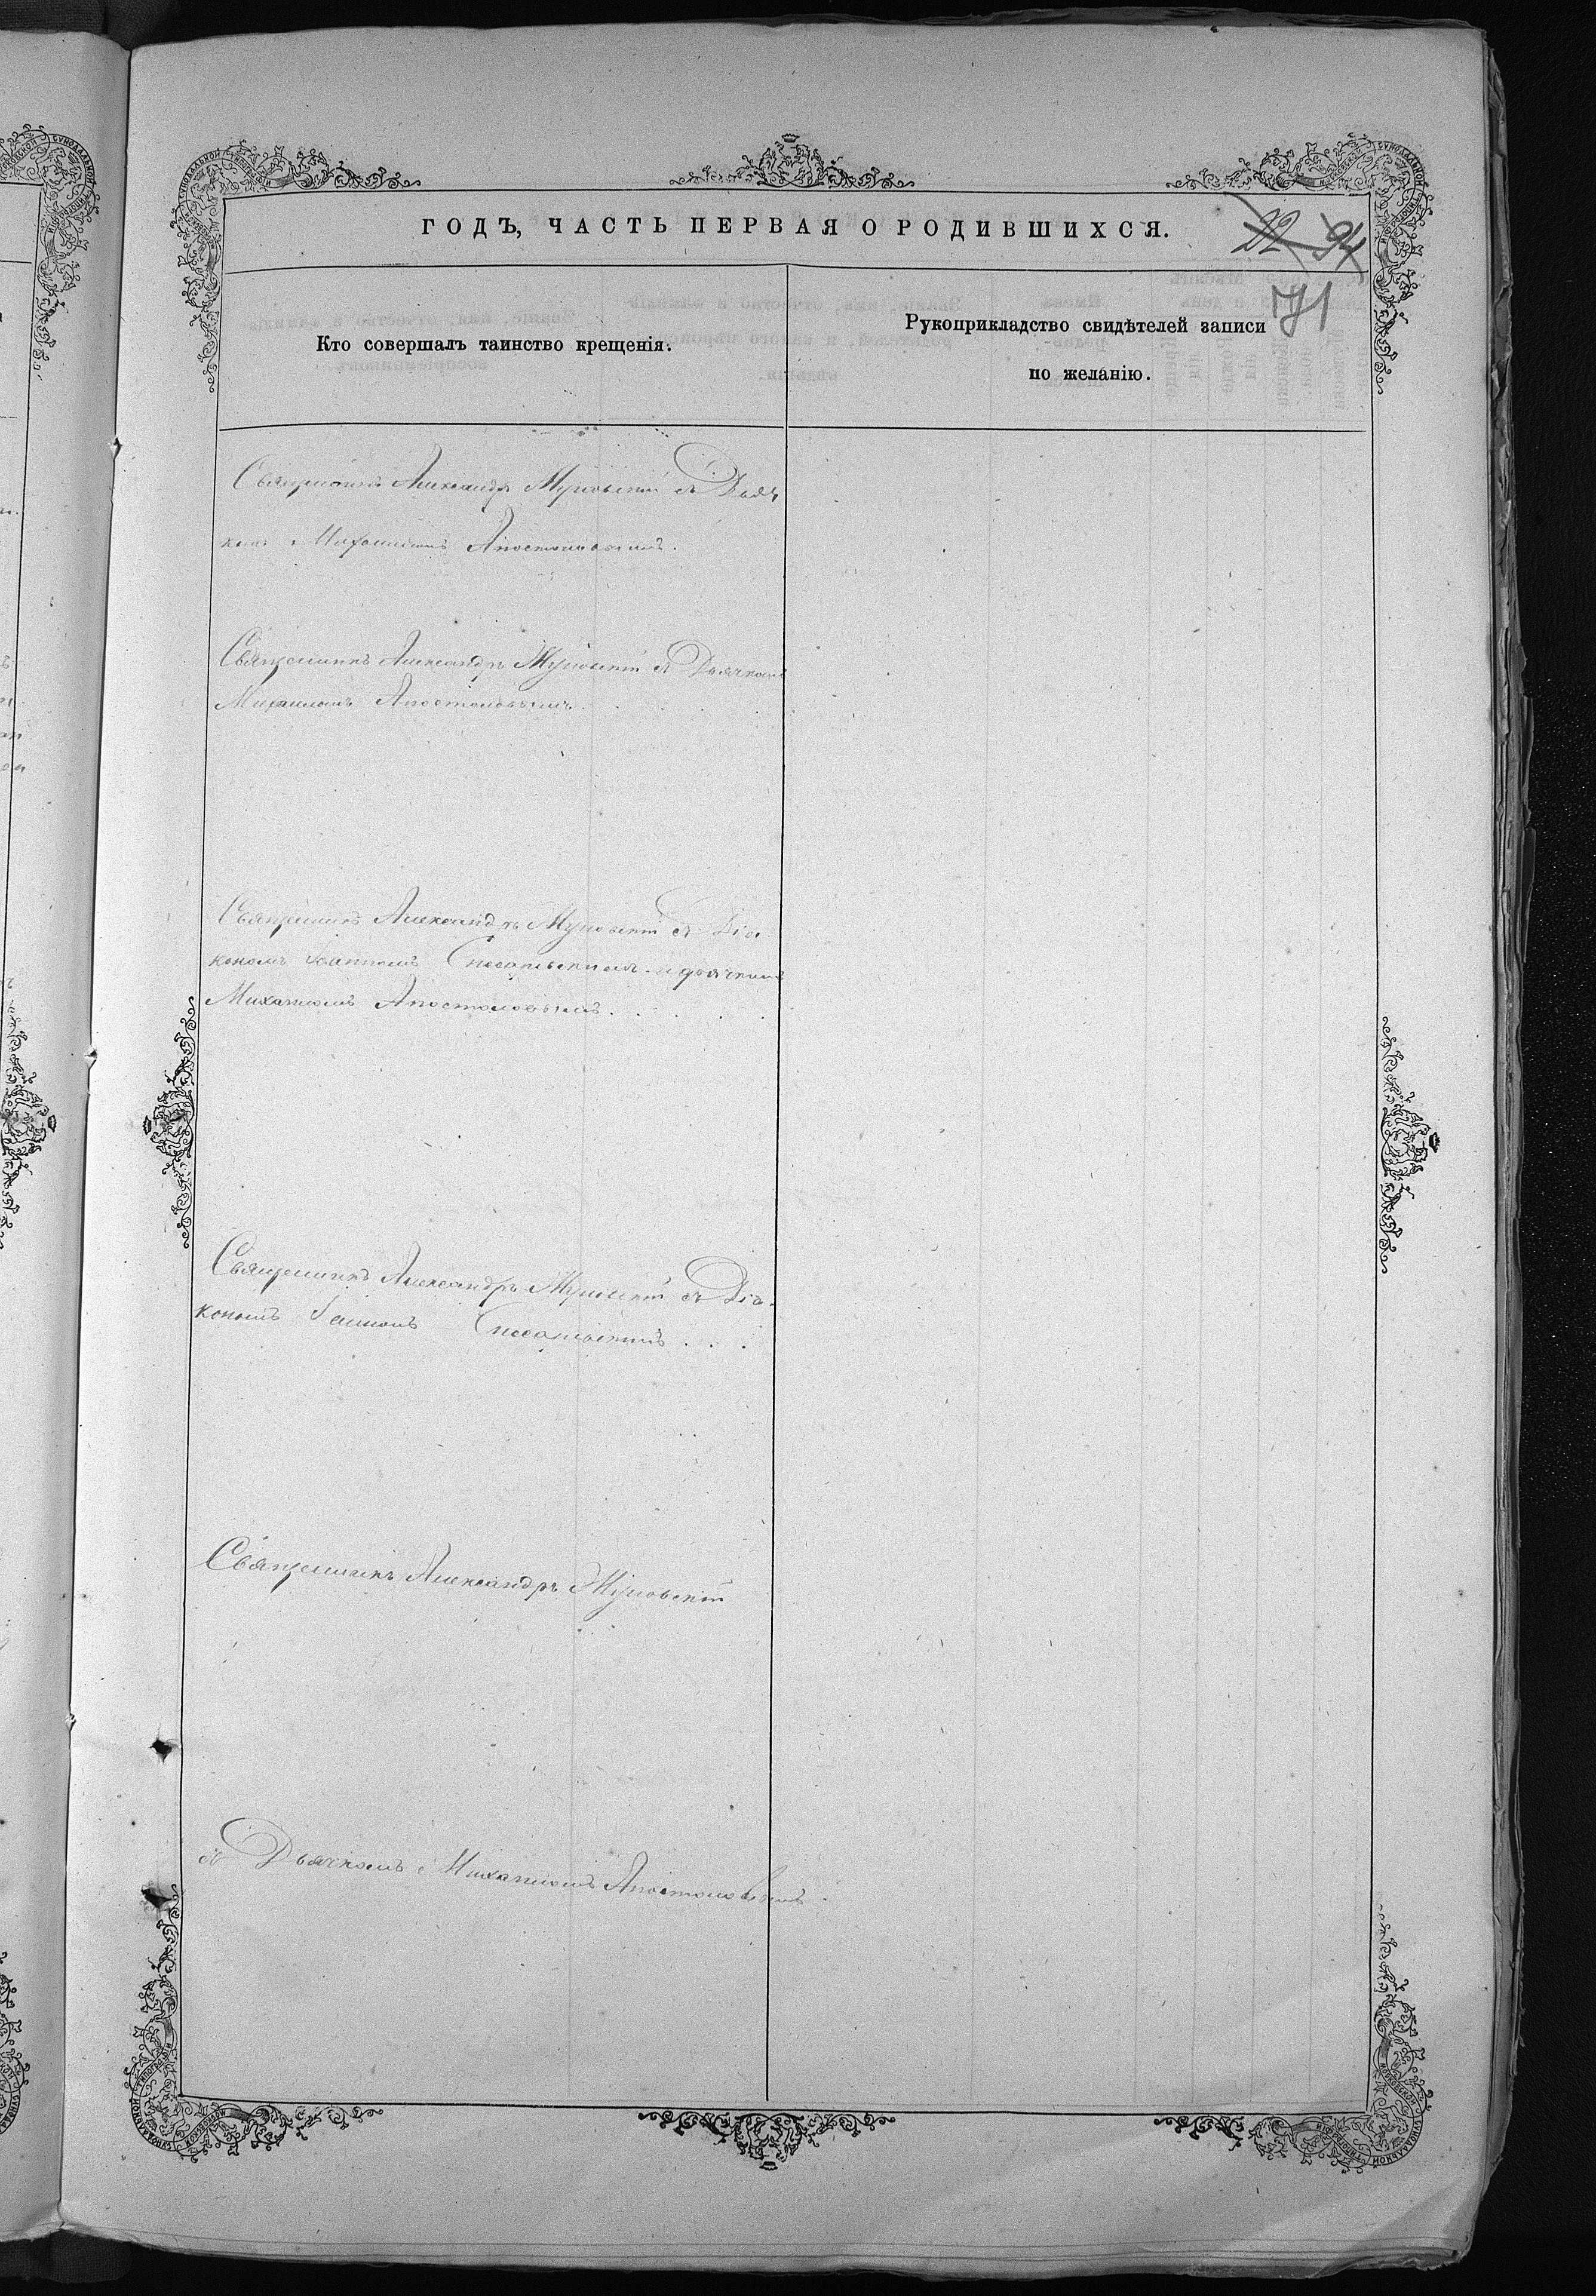 ГОДЪ, ЧАСТЬ ПЕРВАЯ О РОДИВШИХСЯ.
22 94
71
Кто совершалъ таинство крещенія.
Рукоприкладство свидѣтелей записи
по желанію.
Священникъ Александръ съ Дьяч
комъ Михаиломъ Апостоловымъ.
Священникъ Александръ съ Дьячкомъ
Михаиломъ Апостоловымъ.
Священникъ Александръ съ Діа
кономъ Іоанномъ и дьячкомъ
Михаиломъ Апостоловымъ.
Священникъ Александръ съ Діа-
кономъ Іоанномъ
Священникъ Александръ
съ Дьячкомъ Михаиломъ Апостоловымъ.